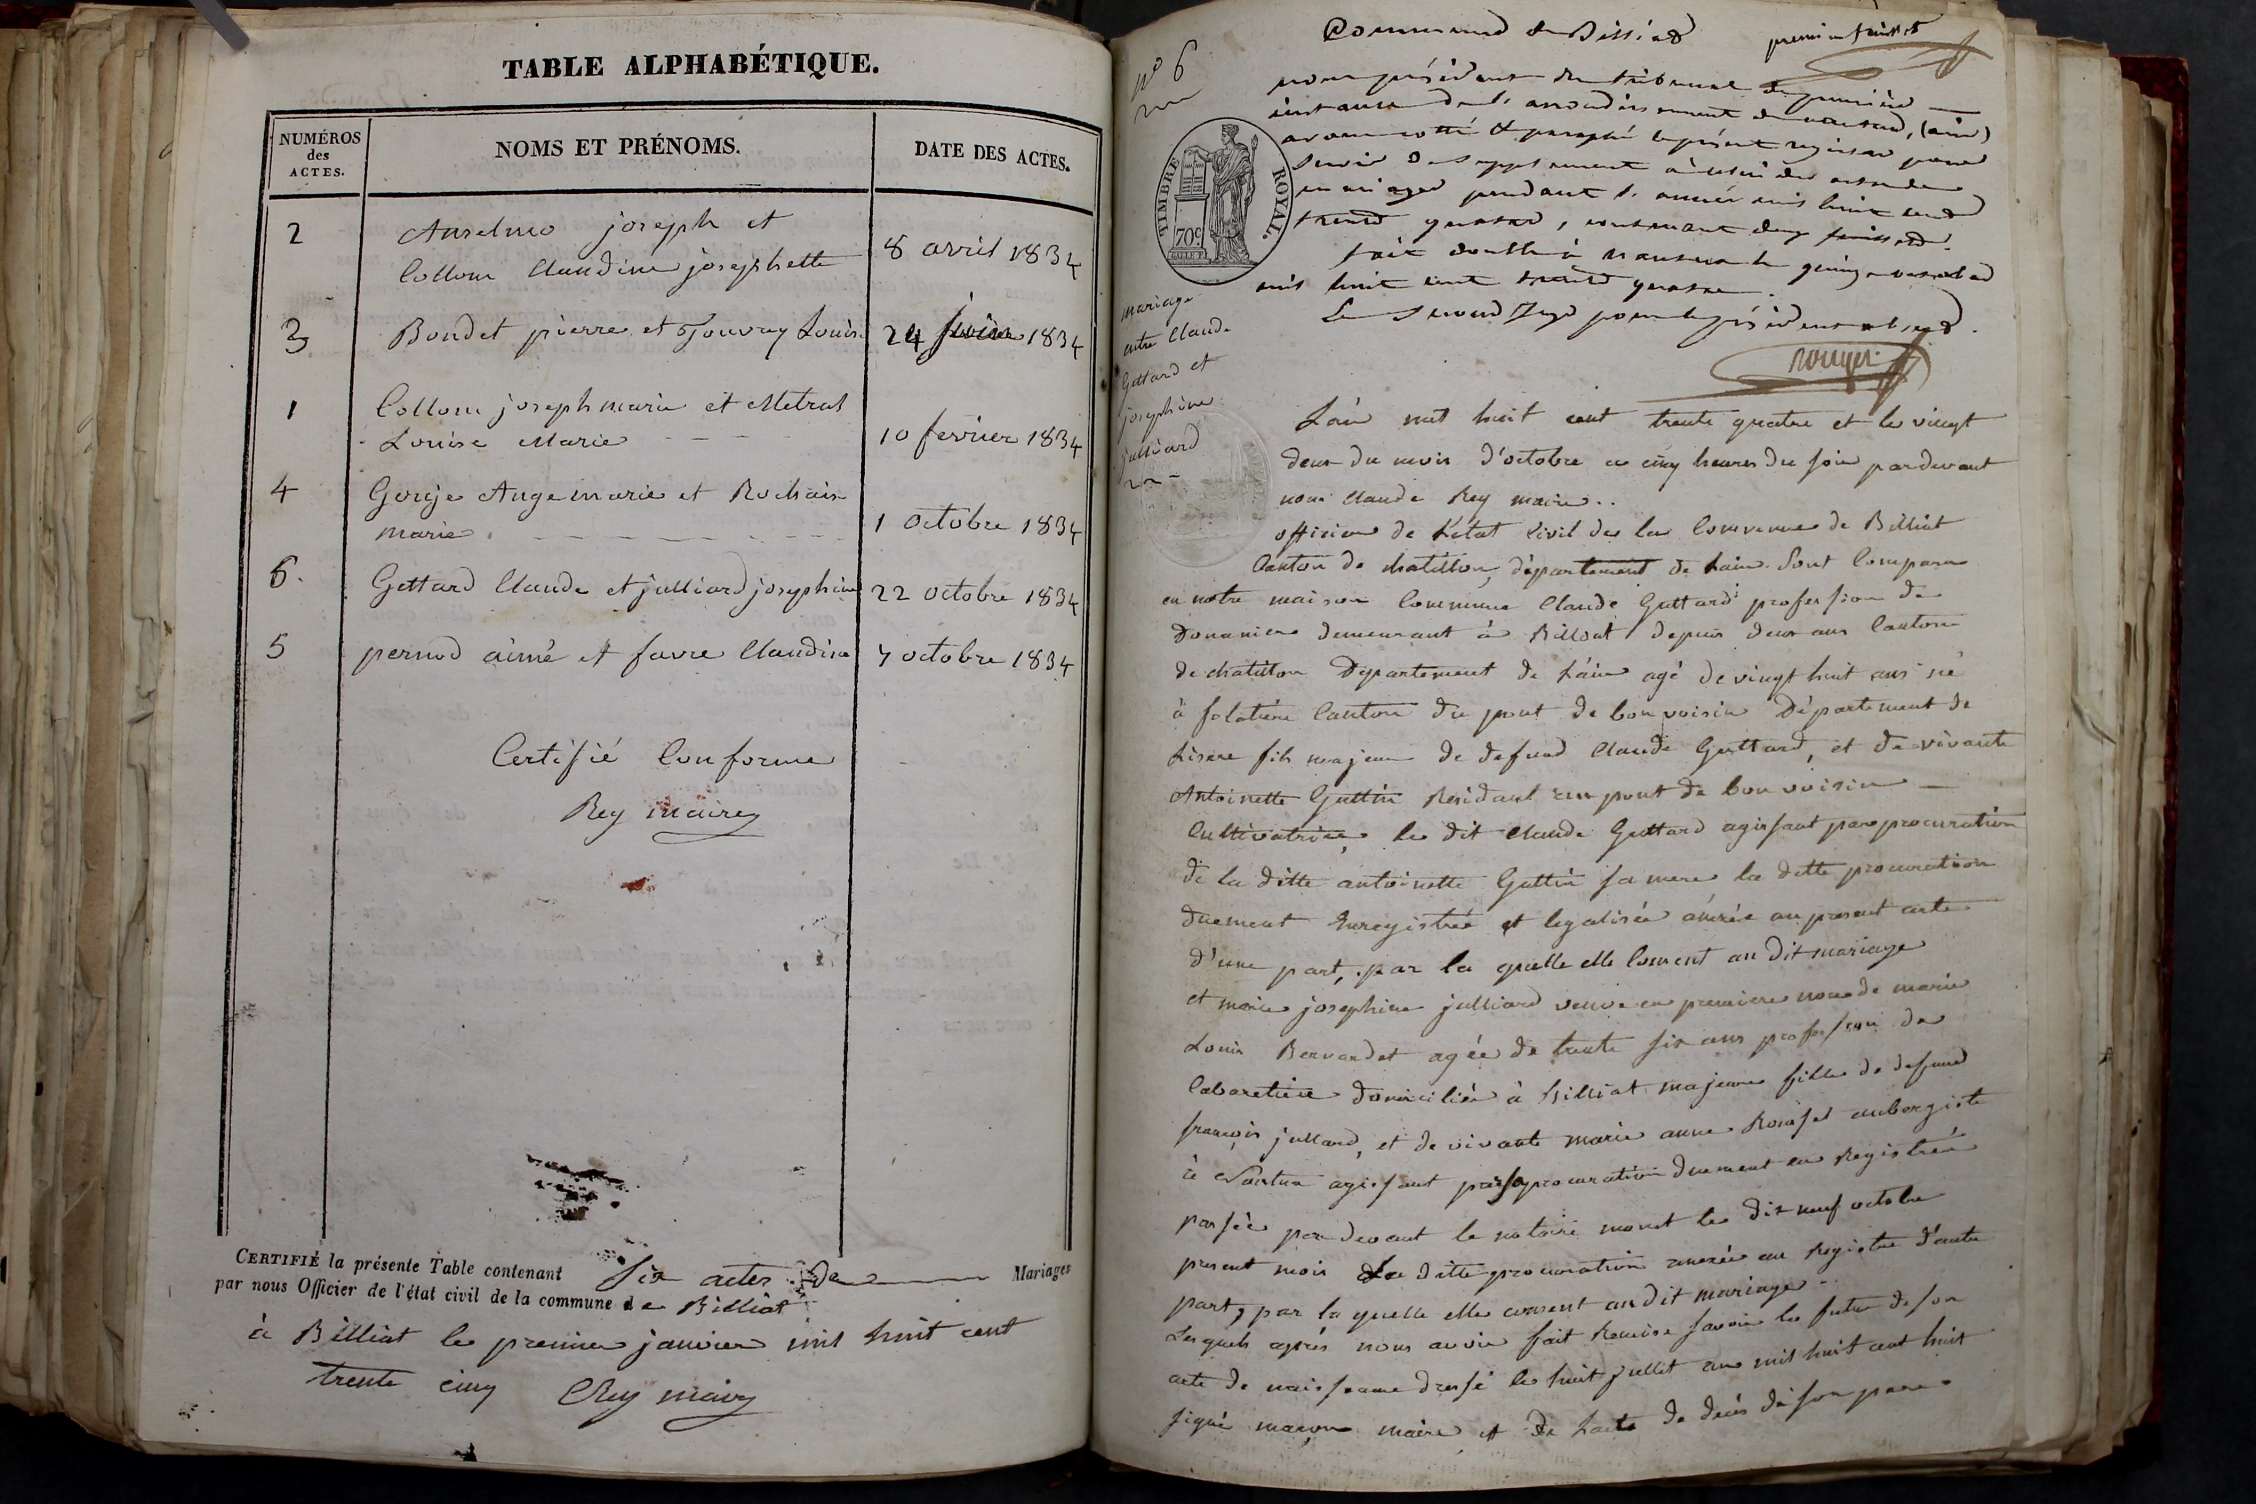 TABLE ALPHABÉTIQUE.
NUMÉROS
des
ACTES.
NOMS ET PRÉNOMS.
DATE DES ACTES.
2 Anselme joseph et
Collom Claudine josephette 8 avril 1834
3 Bondet pierre et Jouvray Louise 24 1834
1 Collom joseph marie et Metral
Louise Marie 10 fevrier 1834
4 Gorije Ange marie et Rochaix
marie 1 octobre 1834
6. Guttard Claude et julliard josephine 22 octobre 1834
5 pernod aimé et favre Claudine 7 octobre 1834
Certifié Conforme
Rey maire
CERTIFIÉ la présente Table contenant six actes de Mariages
par nous Officier de l'état civil de la commune de Billiat
à Billiat le premier janvier mil huit cent
trente cinq Rey maire
Commune de Billiat premier feuillet
nous président du tribunal de première
instance de l'arrondissement de nantua, (ain)
avons cotté & paraphé le présent registre pour
servir de supplement à celui des actes de
mariages pendant l'année mil huit cent
trente quatre, contenant deux feuillets.
fait double à nantua le quinze octobre
mil huit cent trente quatre.
Le second juge pour le président absent.
rouyer
n° 6
TIMBRE ROYAL.
70c
mariage
entre Claude
Guttard et
josephine
julliard
L'an mil huit cent trente quatre et le vingt
deux du mois d'octobre a cinq heures du soir pardevant
nous Claude Rey maire..
officier de L'etat Civil de la Commune de Billiat
Canton de chatillon, département de Lain. Sont Comparu
en notre maison Commune Claude Guttard profession de
Douanier demeurant à Billiat depuis deux ans Canton
de chatillon Département de Lain agé de vingt huit ans né
à folatiere Canton du pont de bonvoisin Département de
Lisere fils majeur de defund Claude Guttard, et de vivante
Antoinette Guttin Residant au pont de bonvoisin
Cultivatrice, le dit Claude Guttard agissant par procuration
de la ditte antoinette Guttin sa mere la ditte procuration
duement Enregistrée et legalisée anexée au present acte
d'une part, par la quelle elle Consent au dit mariage
et marie josephine julliard veuve en premiere noce de marie
Louis Bernardet agée de trente six ans profession de
Cabaretiere domiciliée à Billiat majeure fille de defund
françois jullard, et de vivante marie anne Rosset aubergiste
à Nantua agissant par sa procuration duement en Registrée
passée par devant le notaire monet le dix neuf octobre
present mois La ditte procuration anexée au Registre d'autre
part, par la quelle elle consent au dit mariage
Lesquels après nous avoir fait Remise savoir le futur de son
acte de naissance dressé le huit juillet an mil huit cent huit
signé maire et de Lacte de décès de son pere